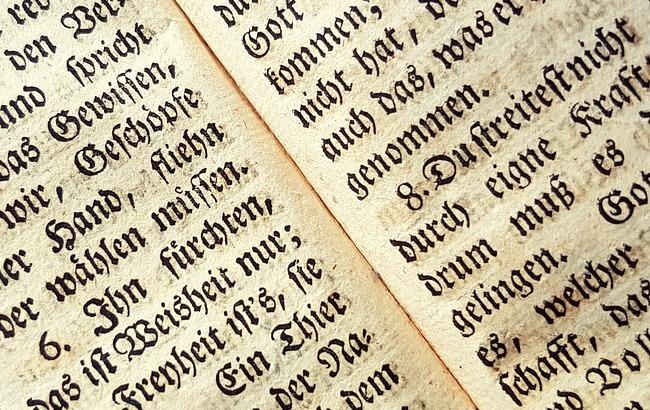 den Ver
und ſpricht
das Gewiſſen,
wir, Geſchöpfe
der Hand, fliehn
der wählen müſſen.
6. Ihn fürchten,
das iſt Weisheit nur;
Freyheit iſt's, ſie
Ein Thier
der Na=
dem
Gott
kommen;
nicht hat,
auch das, was er
genommen.
8. Du ſtreiteſt nicht
durch eigne Kraft
drum muß es
gelingen. Got
es, welcher
ſchafft, das